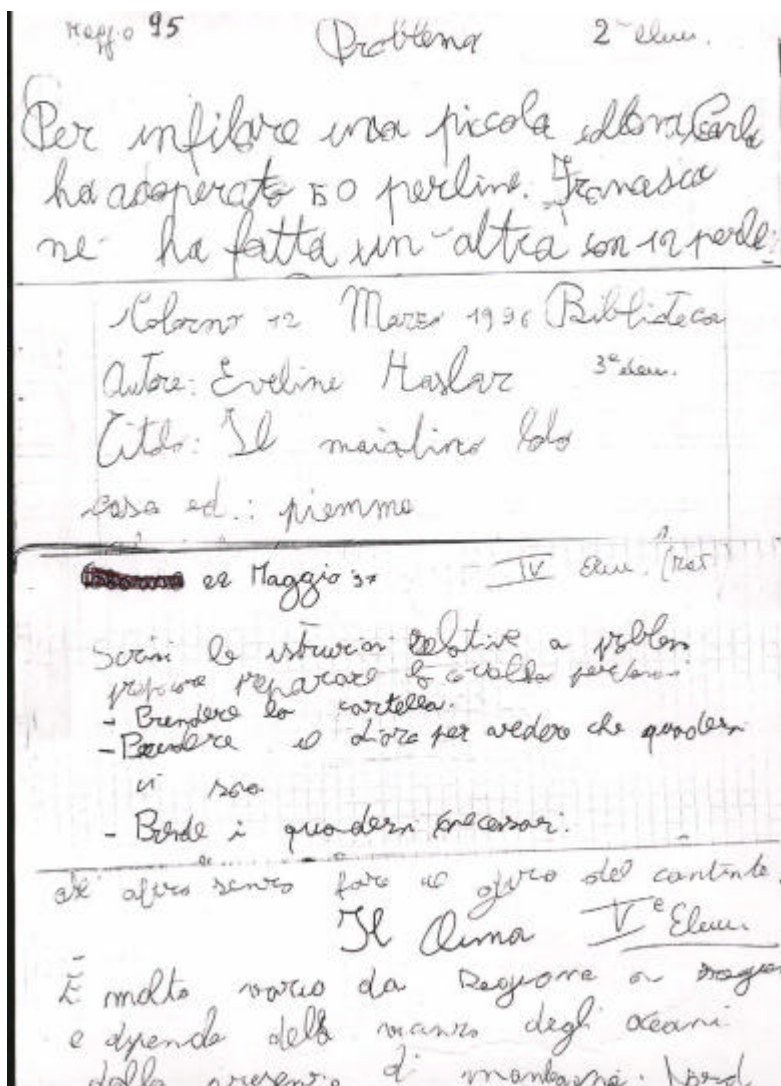 Maggio 95 Problema 2ª elem.
Per infilare una piccola collana Carla
ha adoperato 50 perline. Francesca
ne ha fatta un altra con 12 perle.
Colorno 12 Marzo 1996 Biblioteca
Autore: Eveline Haslar 3ª elem.
Titolo: Il maialino Lolo
casa ed.: piemme
22 Maggio 97 IV Elem.
Scrivi le istruzioni relative a
preparare la
- Prendere la cartella.
- Prendere il diario per vedere che quaderni
ci sono
- Prende i quaderni necessari.
senza fare il giro del continente.
Il Clima Vª Elem.
È molto vario da Regione a
e dipende dalla vicinanza degli oceani
dalla presenza di montagne.